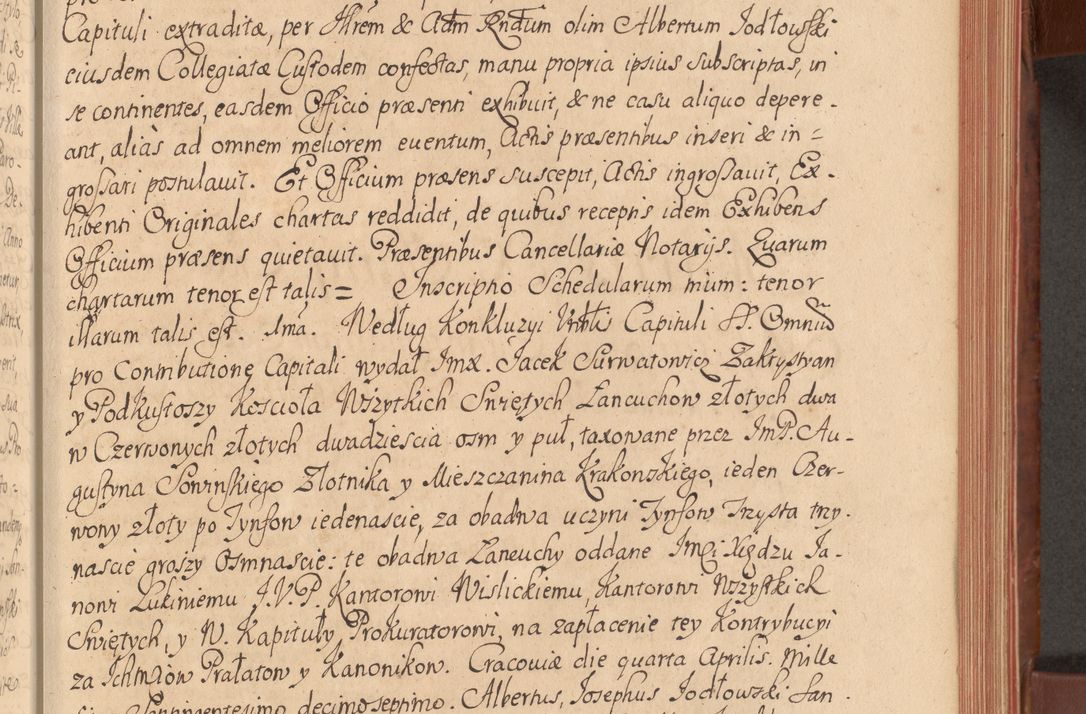 Capituli extraditæ, per Illrem & Adm Rndum olim Albertum Jodłowski
eiusdem Collegiatæ Custodem confectas, manu propria ipsius subscriptas, in
se continentes, easdem Officio præsenti exhibuit, & ne casu aliquo depere-
ant, aliàs ad omnem meliorem euentum, Actis præsentibus inseri & in=
grossari postulauit. Et Officium præsens suscepit, Actis ingrossauit, Ex-
hibenti Originales chartas reddidit, de quibus receptis idem Exhibens
Officium præsens quietauit. Præsentibus Cancellariæ Notarijs. Quarum
chartarum tenor est talis = Inscriptio Schedularum mium: tenor
illarum talis est. 1ma. Według Konkluzyi Capituli SS. Omniū
pro Contributione Capitali wydał Imæ. Jacek Surwatowicz Zakrystyan
y Podkustoszy Koscioła Wszytkich Swiętych Łancuchow złotych dwa
w Czerwonych złotych dwadziescia osm y puł, taxowane przez ImP. Au-
gustyna Sowinskiego Złotnika y Mieszczanina Krakowskiego, ieden Czer-
wony złoty po Tynfow iedenascie, za obadwa uczyni Tynfow Trzysta trzy-
nascie groszy Osmnascie: te obadwa Łancuchy oddane Imci Xiędzu Ja-
nowi Lukiniemu J.V.P. Kantorowi Wislickiemu, Kantorowi Wszystkich
Swiętych, y W. Kapituły Prokuratorowi, na zapłacenie tey Kontrybucyi
za Ichmciow Prałatow y Kanonikow. Cracouiæ die quarta Aprilis. Mille
Septingentesimo decimoseptimo. Albertus, Josephus Jodłowski San